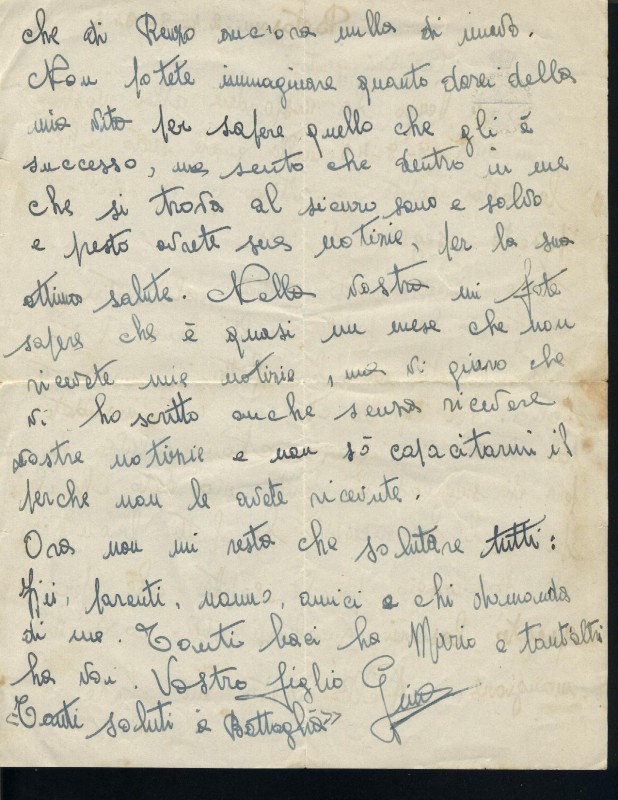 che di Renzo ancora nulla di nuovo.
Non potete immaginare quanto darei della
mia vita per sapere quello che gli è
successo, ma sento che dentro in me
che si trova al sicuro sano e salvo
e presto avrete sue notizie, per la sua
ottima salute. Nella vostra mi fate
sapere che è quasi un mese che non
ricevete mie notizie, ma vi giuro che
vi ho scritto anche senza ricevere
vostre notizie e non sò capacitarmi il
perche non le avete ricevute.
Ora non mi resta che salutare tutti:
Zii, parenti, nonno, amici e chi domanda
di me. Tanti baci ha Mario e tant'altri
ha voi. Vostro figlio Gino
«Tanti saluti a Battaglia»